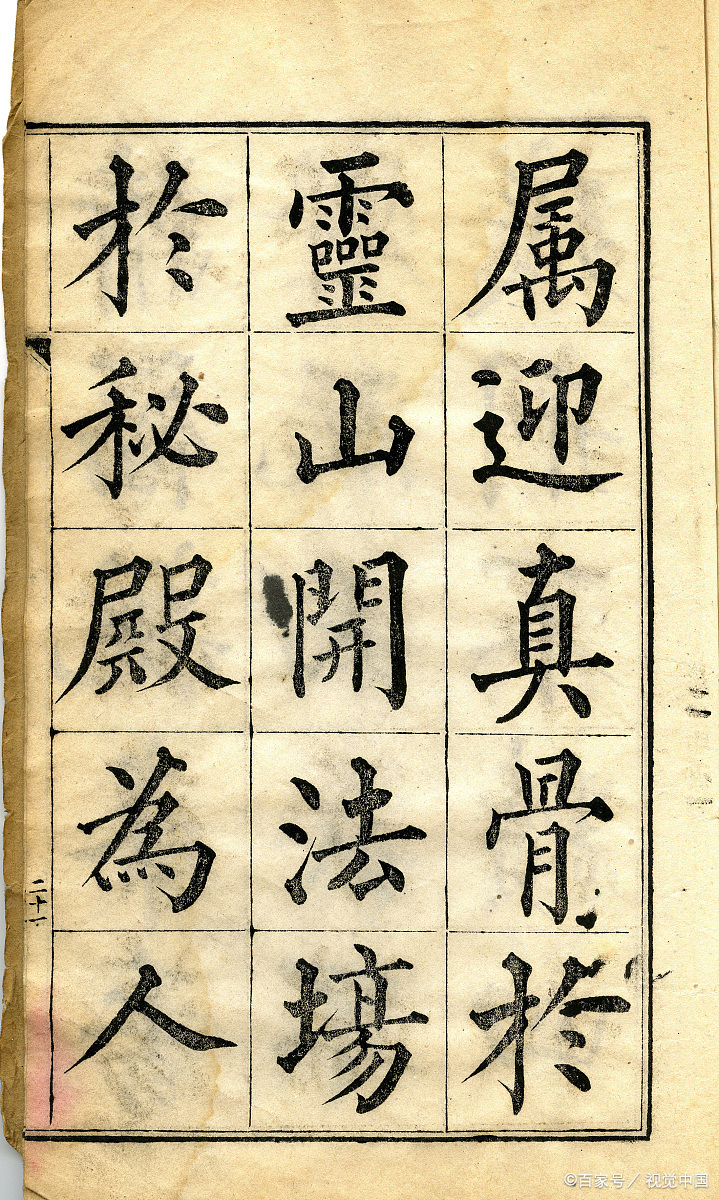 属迎真骨於
靈山開法場
於秘殿為人
二十一
©百家号／视觉中国